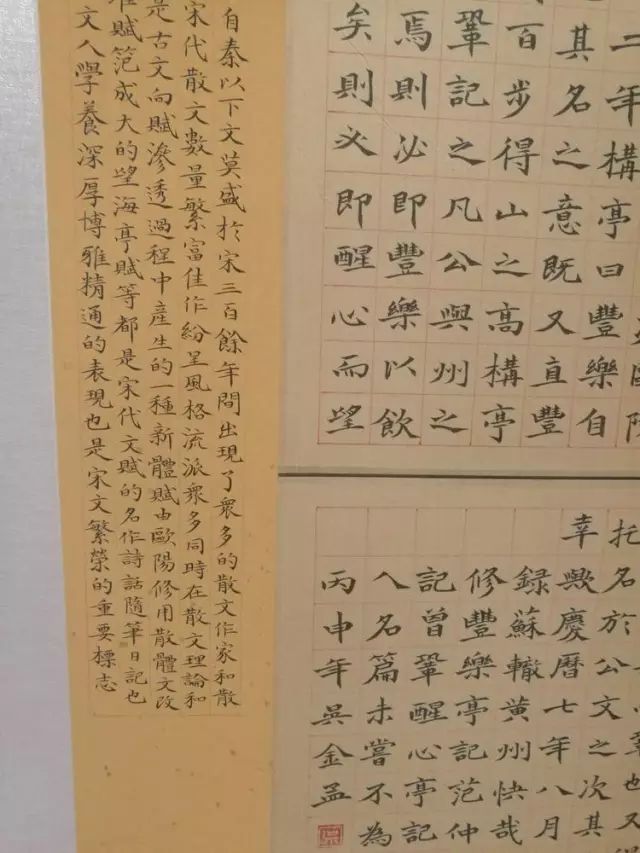 二年構亭曰豐樂自
其名之意既又直豐
百步得山之高構亭
鞏記之凡公與州之
焉則必即豐樂以飲
矣則必即醒心而望
托名於公文之次其又
幸歟慶曆七年八月
錄蘇轍黃州快哉
修豐樂亭記范仲
記曾鞏醒心亭記
人名篇未嘗不為
丙申年吳金孟
自秦以下文莫盛於宋三百餘年間出現了眾多的散文作家和散
宋代散文數量繁富佳作紛呈風格流派眾多同時在散文理論和
是古文向賦滲透過程中產生的一種新體賦由歐陽修用散體文改
賦范成大的望海亭賦等都是宋代文賦的名作詩話隨筆日記也
文人學養深厚博雅精通的表現也是宋文繁榮的重要標志